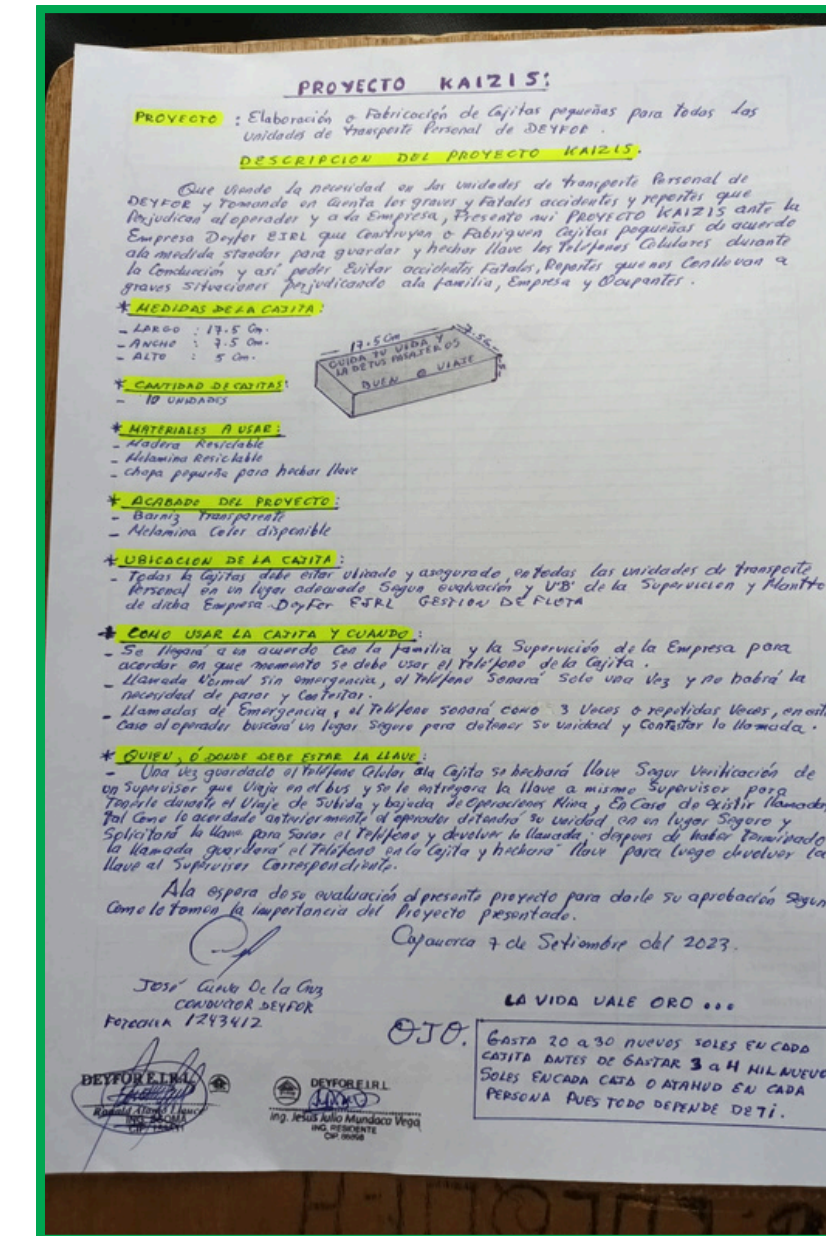 PROYECTO KAIZIS:
PROYECTO : Elaboración o Fabricación de Cajitas pequeñas para todas las
unidades de transporte Personal de DEYFOR.
DESCRIPCION DEL PROYECTO KAIZIS.
Que viendo la necesidad en las unidades de transporte Personal de
DEYFOR y Tomando en Cuenta los graves y Fatales accidentes y reportes que
Perjudican al operador y a la Empresa, Presento mi PROYECTO KAIZIS ante la
Empresa Deyfor EIRL que Construyan o Fabriquen Cajitas pequeñas de acuerdo
ala medida standar para guardar y hechar llave los Teléfonos Celulares durante
la Conducción y así poder Evitar accidentes Fatales, Reportes que nos Conllevan a
graves situaciones perjudicando ala familia, Empresa y Ocupantes.
* MEDIDAS DE LA CAJITA:
- LARGO : 17.5 Cm.
- ANCHO : 7.5 Cm.
- ALTO : 5 Cm.
17.5 Cm
7.5
5
CUIDA TU VIDA Y
LA DE TUS PASAJEROS
BUEN VIAJE
* CANTIDAD DE CAJITAS:
- 10 UNIDADES
* MATERIALES A USAR:
- Madera Resiclable
- Melamina Resiclable
- Chapa pequeña para hechar llave
* ACABADO DEL PROYECTO:
- Barniz Transparente
- Melamina Color disponible
* UBICACION DE LA CAJITA:
- Todas la Cajitas debe estar ubicado y asegurado, en todas las unidades de transporte
Personal en un lugar adecuado Segun evaluación y V°B° de la Supervicion y Mantto
de dicha Empresa DeyFor EJRL GESTION DE FLOTA
* COMO USAR LA CAJITA Y CUANDO:
- Se llegará a un acuerdo Con la familia y la Supervición de la Empresa para
acordar en que momento se debe usar el Teléfono de la Cajita.
- Llamada Normal sin emergencia, el Teléfono Sonará Solo una Vez y no habrá la
necesidad de parar y Contestar.
- Llamadas de Emergencia, el Teléfono sonará como 3 Veces o repetidas Veces, en este
Caso el operador buscará un lugar Seguro para detener su unidad y Contestar la llamada.
* QUIEN, Ó DONDE DEBE ESTAR LA LLAVE:
- Una vez guardado el Teléfono Celular ala Cajita se hechará llave Segun Verificación de
un Supervisor que Viaja en el bus y se le entregara la llave a mismo Supervisor para
Tenerle durante el Viaje de Subida y bajada de Operaciones Mina, En Caso de existir llamada,
Tal Como lo acordado anteriormente el operador detendrá su unidad en un lugar Seguro y
Solicitará la llave para Sacar el Teléfono y devolver la llamada; despues de haber Terminado
la llamada guardará el Teléfono en la Cajita y hechará llave para luego devolver la
llave al Supervisor Correspondiente.
Ala espera de su evaluación al presente proyecto para darle su aprobación Segun
Como lo tomen la importancia del Proyecto presentado.
Cajamarca 7 de Setiembre del 2023.
José Cueva De la Cruz
CONDUCTOR DEYFOR
Fotocheck 1243412
LA VIDA VALE ORO ...
OJO.
GASTA 20 a 30 nuevos SOLES EN CADA
CAJITA ANTES DE GASTAR 3 a 4 MIL NUEVO
SOLES EN CADA CAJA O ATAHUD EN CADA
PERSONA PUES TODO DEPENDE DE TI.
DEYFOR E.I.R.L.
DEYFOR E.I.R.L.
Ing. Jesús Julio Mundaca Vega
ING. RESIDENTE